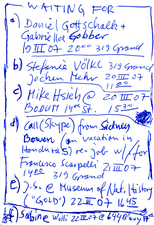 WAITING FOR
a) Daniel Gottschalk +
Gabriella Gobber
19 III 07 2000 319 Grand
b) Stefanie Völkl 319 Grand
Jochen Mehr 20 III 07
1100
c) Mike Hsieh @ 20 III 07
BODUM 14th St. 1530
d) call (Skype) from Sidney
Bowen (on vacation in
Honduras) re: job w/for
Francisco Scarpelli 21 III 07
1400 319 Grand
e) J.S. @ Museum of Nat. History
("GOLD") 22 III 07 1645
f) Sabine 22 III 07 @